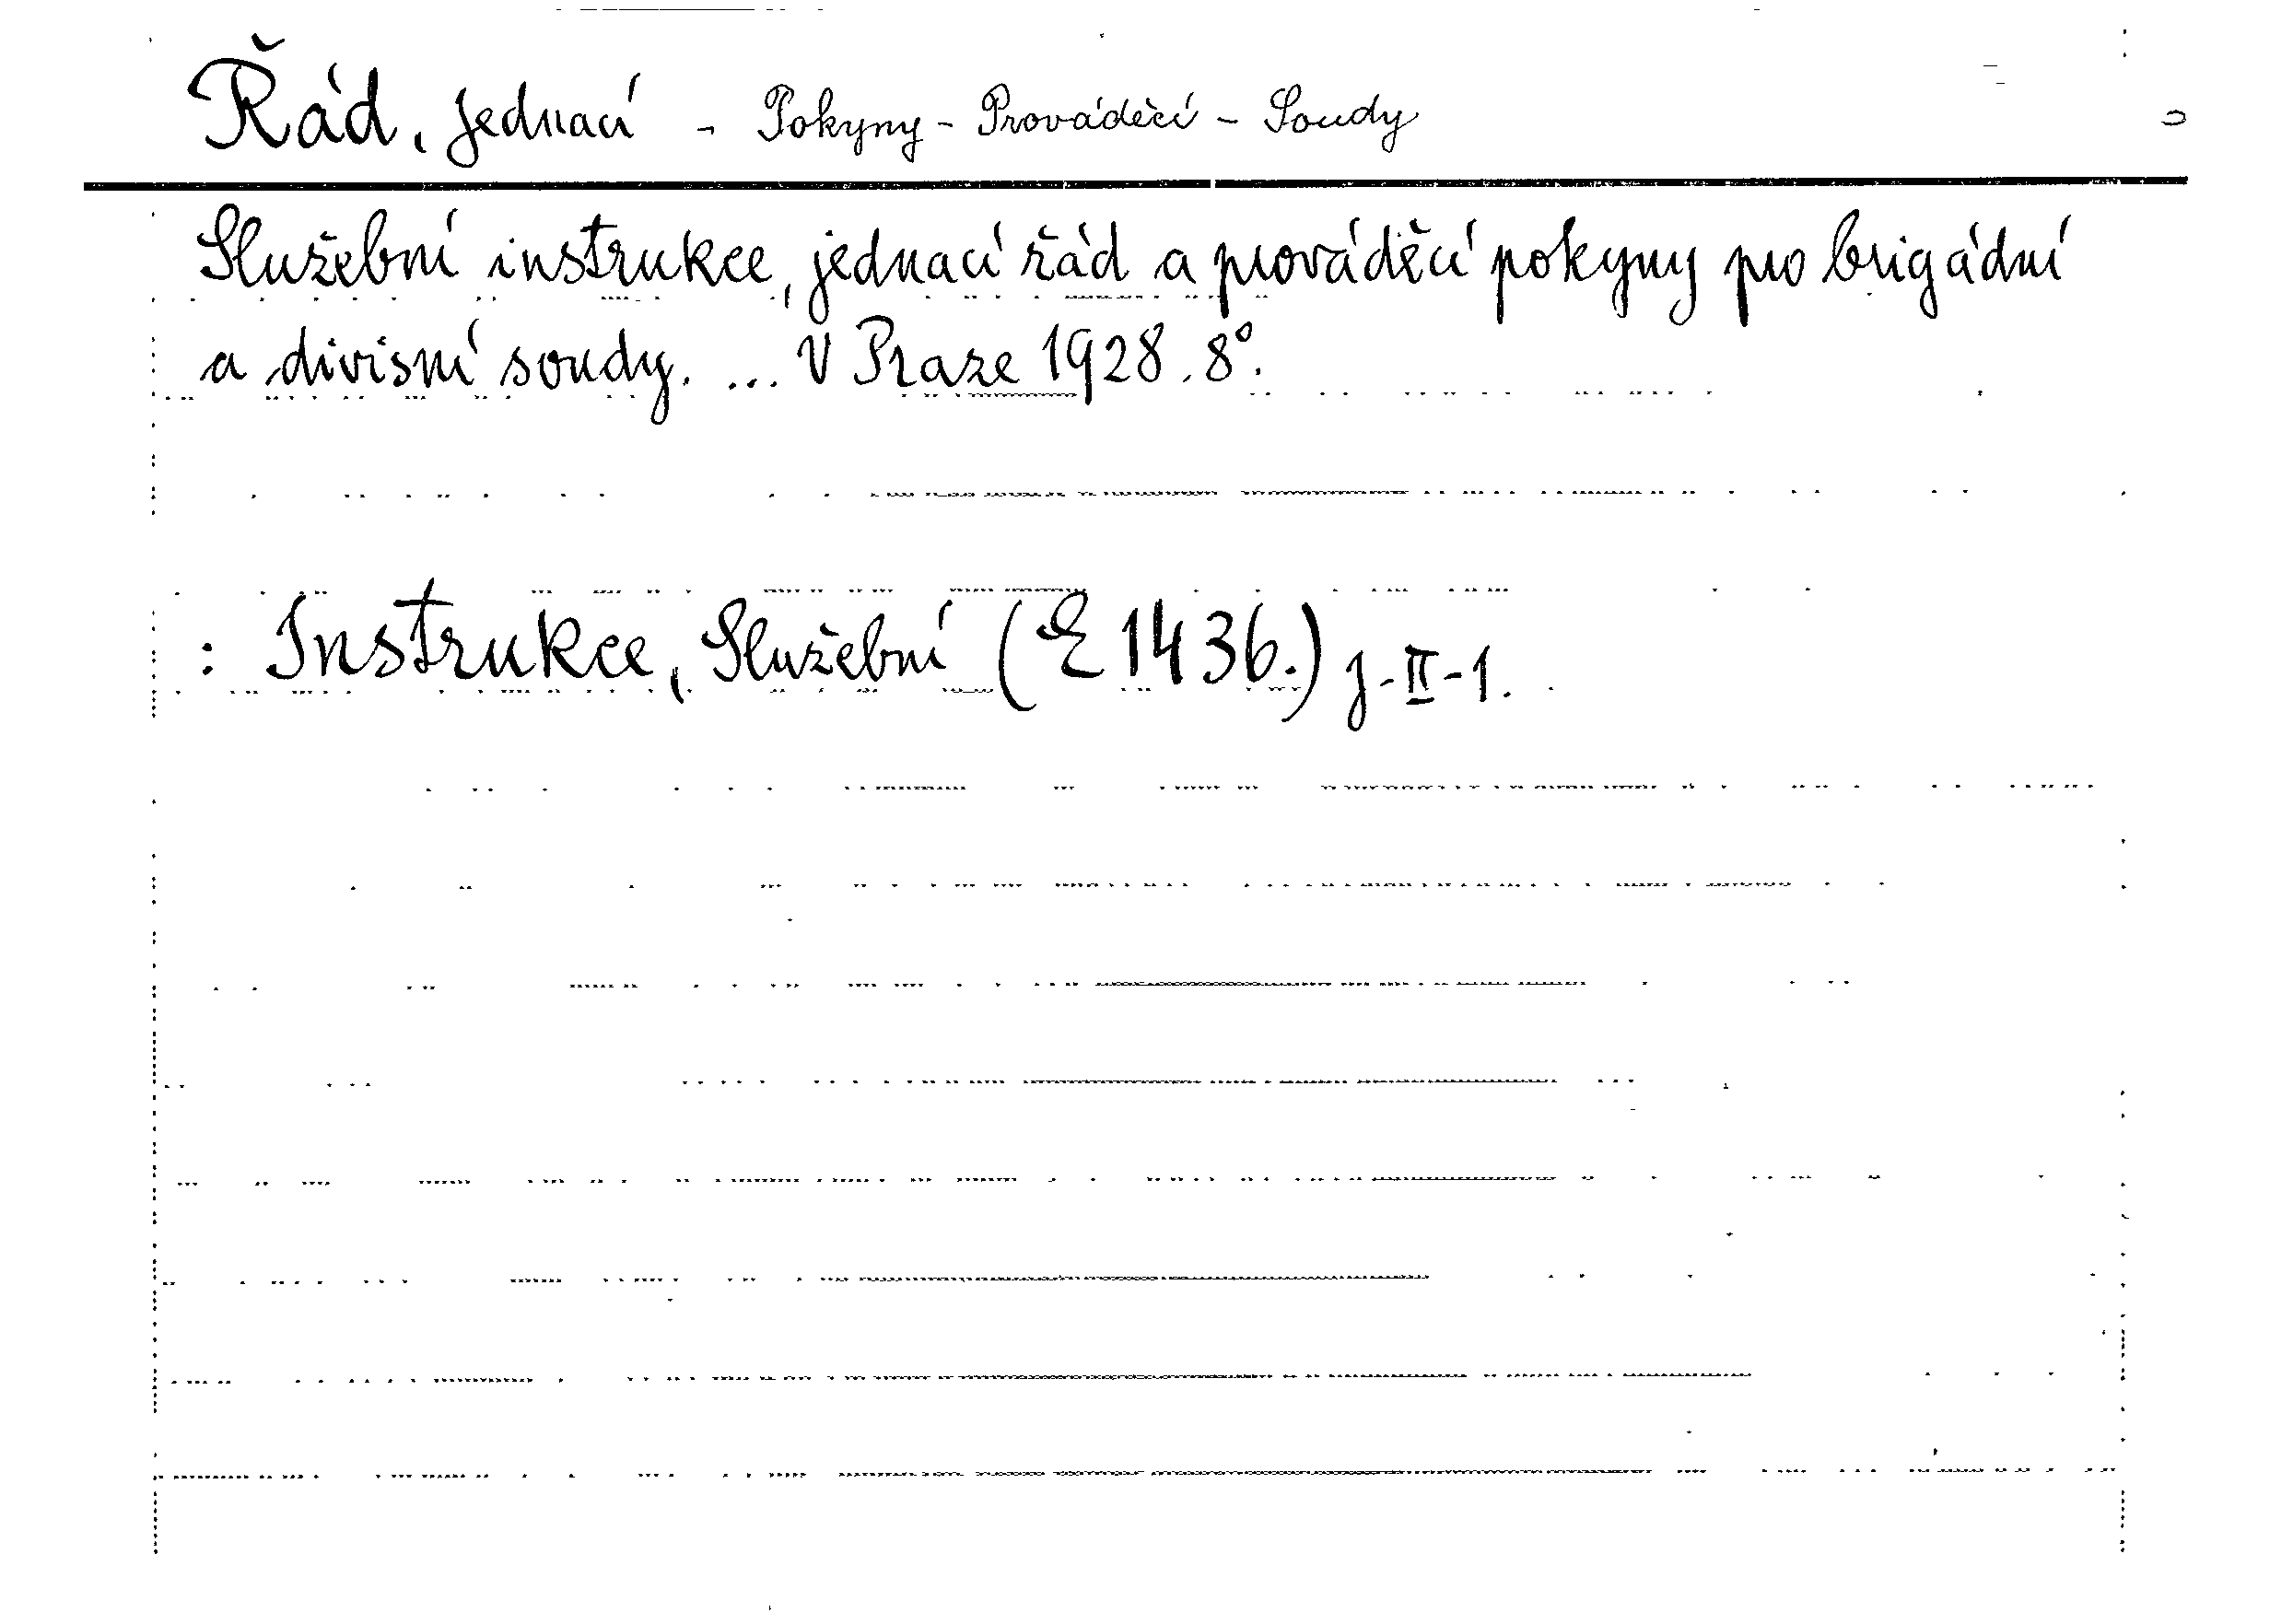 Řád, jednací - Pokyny - Prováděcí - Soudy
Služební instrukce, jednací řád a prováděcí pokyny pro brigádní
a divisní soudy. ... V Praze 1928. 8°.
: Instrukce, Služební (E 1436.) J-II-1.